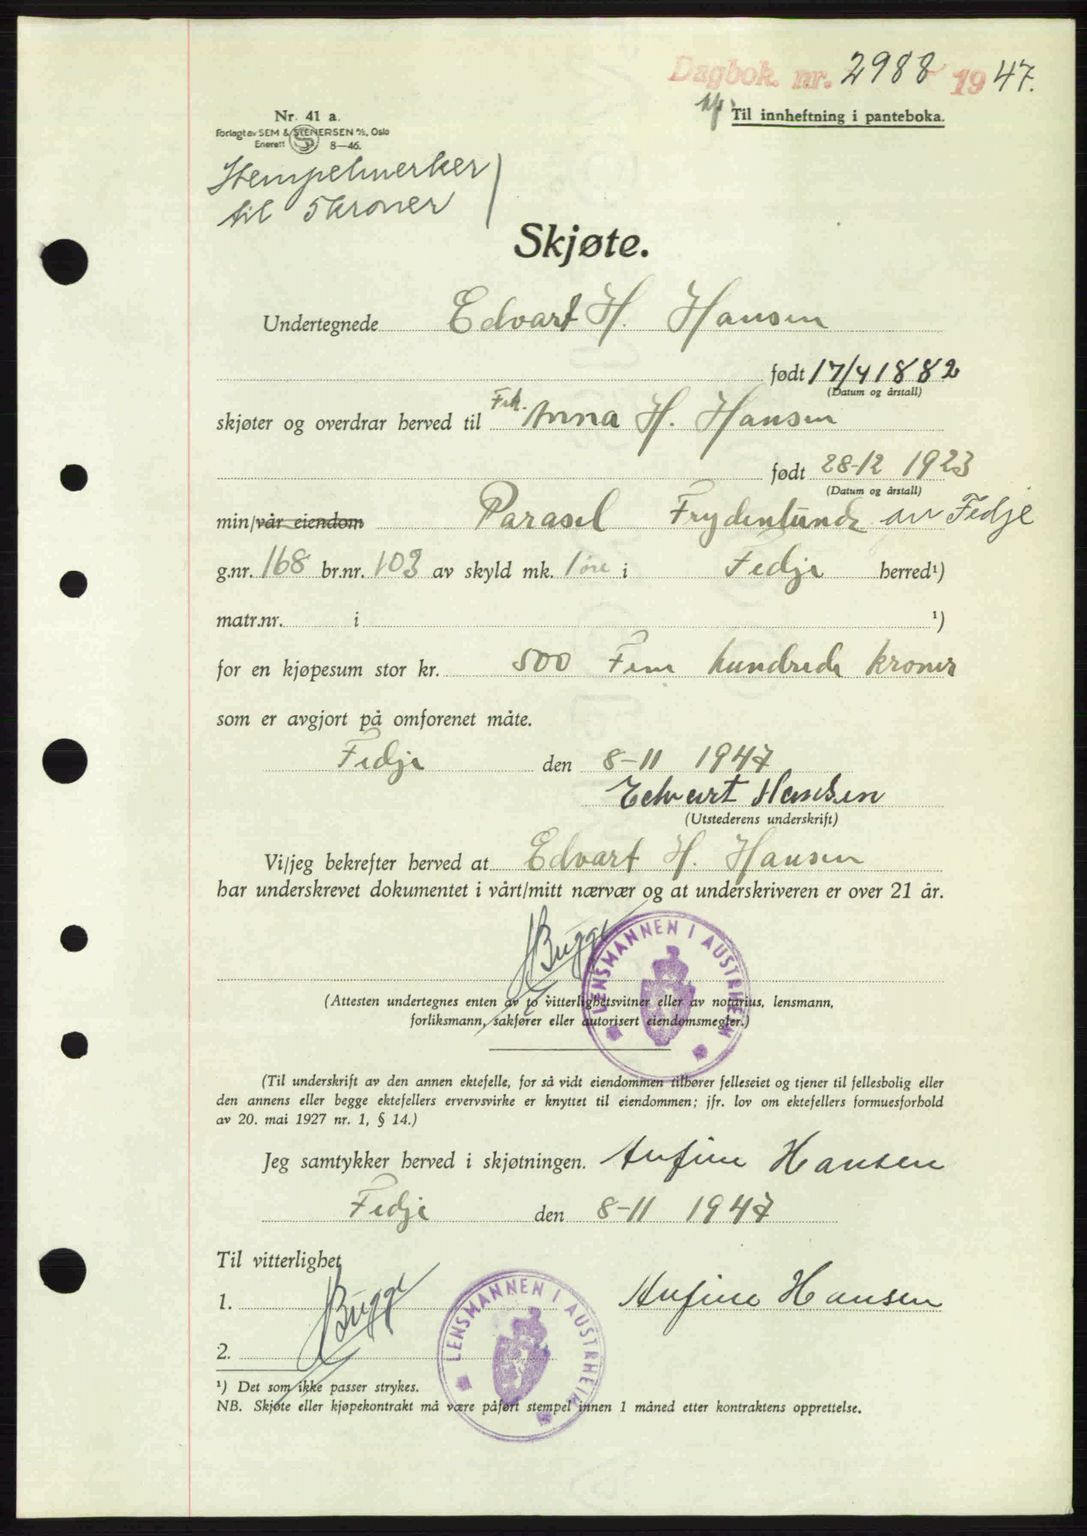 Dagbok nr. 2988 1947.
Til innheftning i panteboka.
Nr. 41 a.
Forlagt av SEM & STENERSEN A/S, Oslo
Enerett 8—46.
Stempelmerker
til 5 kroner
Skjøte.
Undertegnede Edvart H. Hansen
født 17/4 1882
(Datum og årstall)
skjøter og overdrar herved til Frk. Anna H. Hansen
født 28-12 1923
(Datum og årstall)
min/vår eiendom Parasel Frydenlund av Fedje
g.nr. 168 br.nr. 103 av skyld mk. 1 øre i Fedje herred¹)
matr.nr. i ¹)
for en kjøpesum stor kr. 500 Fem hundrede kroner
som er avgjort på omforenet måte.
Fedje den 8-11 1947
Edvart Hansen
(Utstederens underskrift)
Vi/jeg bekrefter herved at Edvart H. Hansen
har underskrevet dokumentet i vårt/mitt nærvær og at underskriveren er over 21 år.
Bugge
LENSMANNEN I AUSTRHEIM
(Attesten undertegnes enten av to vitterlighetsvitner eller av notarius, lensmann,
forliksmann, sakfører eller autorisert eiendomsmegler.)
(Til underskrift av den annen ektefelle, for så vidt eiendommen tilhører felleseiet og tjener til fellesbolig eller
den annens eller begge ektefellers ervervsvirke er knyttet til eiendommen; jfr. lov om ektefellers formuesforhold
av 20. mai 1927 nr. 1, § 14.)
Jeg samtykker herved i skjøtningen. Anfine Hansen
Fedje den 8-11 1947
Til vitterlighet
1. Bugge Anfine Hansen
LENSMANNEN I AUSTRHEIM
2.
¹) Det som ikke passer strykes.
NB. Skjøte eller kjøpekontrakt må være påført stempel innen 1 måned etter kontraktens opprettelse.